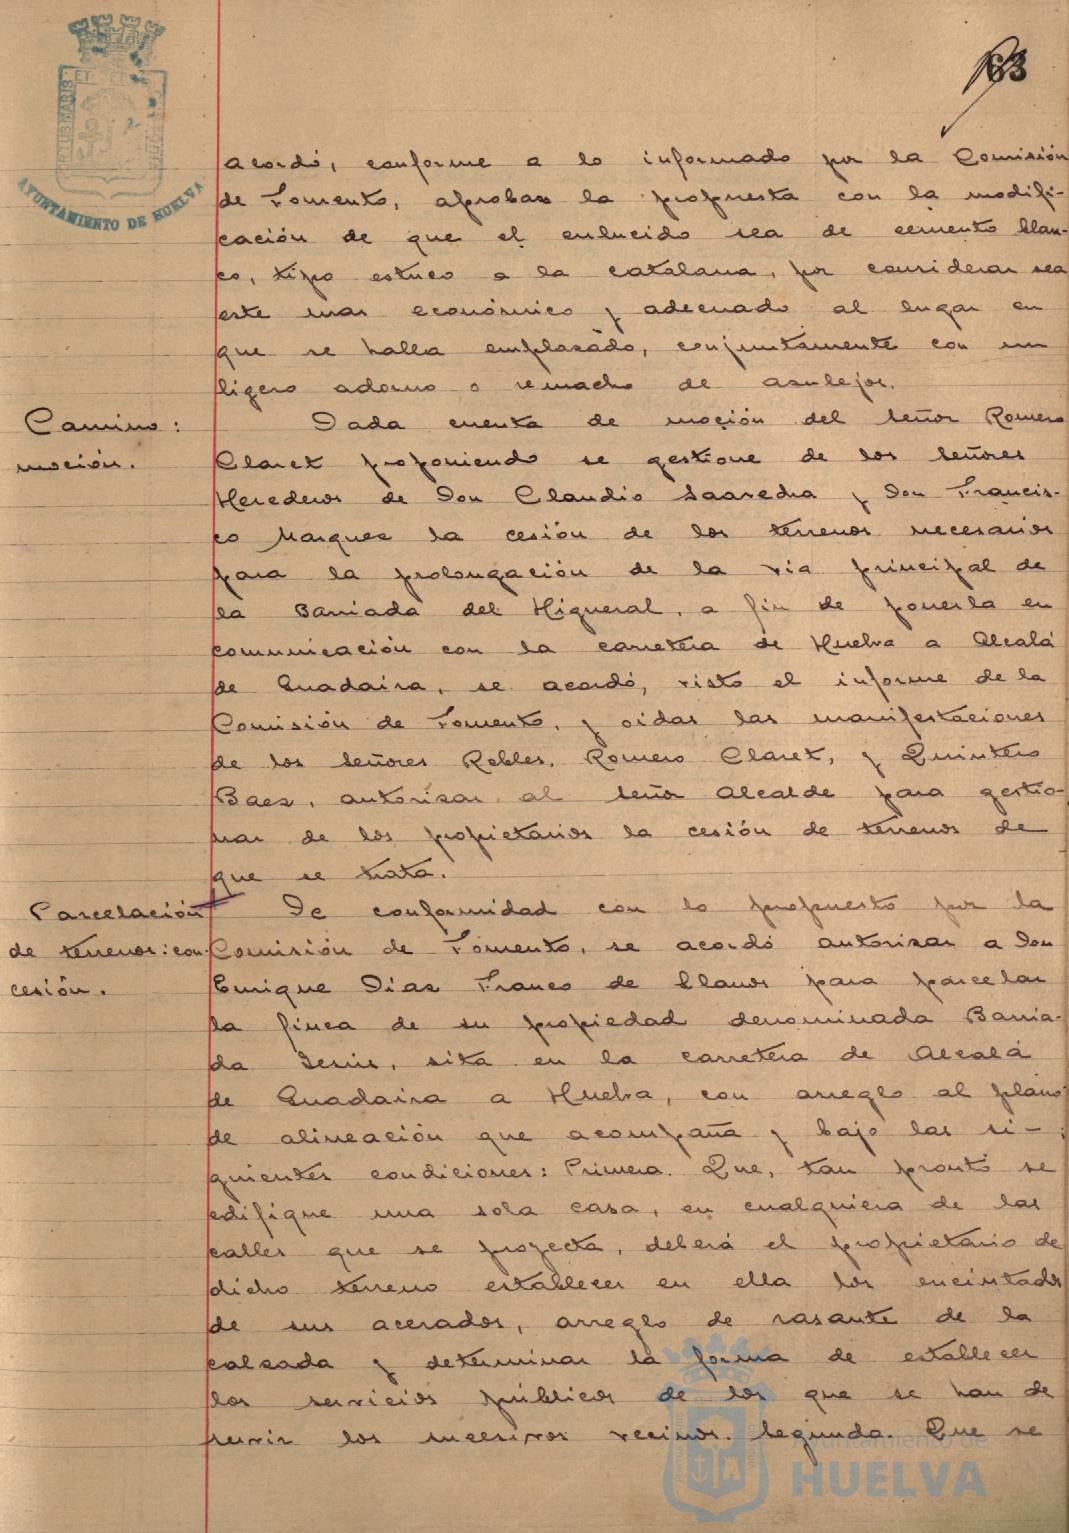 63
AYUNTAMIENTO DE HUELVA
acordó, conforme a lo informado por la Comisión
de Fomento, aprobar la propuesta con la modifi-
cación de que el enlucido sea de cemento blan-
co, tipo estuco a la catalana, por considerar sea
este mas económico y adecuado al lugar en
que se halla emplazado, conjuntamente con un
ligero adorno o remacho de azulejos.
Camino:
moción.
Dada cuenta de moción del Señor Romero
Claret proponiendo se gestione de los Señores
Herederos de Don Claudio Saavedra y Don Francis-
co Marquez la cesión de los terrenos necesarios
para la prolongación de la via principal de
la Barriada del Higueral, a fin de ponerla en
comunicación con la carretera de Huelva a Alcalá
de Guadaira, se acordó, visto el informe de la
Comisión de Fomento, y oidas las manifestaciones
de los Señores Robles, Romero Claret, y Quintero
Baez, autorizar al Señor Alcalde para gestio-
nar de los propietarios la cesión de terrenos de
que se trata.
Parcelación
de terrenos: con-
cesión.
De conformidad con lo propuesto por la
Comisión de Fomento, se acordó autorizar a Don
Enrique Díaz Franco de Llanos para parcelar
la finca de su propiedad denominada Barria-
da Jesús, sita en la carretera de Alcalá
de Guadaira a Huelva, con arreglo al plano
de alineación que acompaña y bajo las si-
guientes condiciones: Primera. Que, tan pronto se
edifique una sola casa, en cualquiera de las
calles que se proyecta, deberá el propietario de
dicho terreno establecer en ella los encintados
de sus acerados, arreglo de rasante de la
calzada y determinar la forma de establecer
los servicios públicos de los que se han de
servir los sucesivos vecinos. Segunda. Que se
Ayuntamiento de
HUELVA